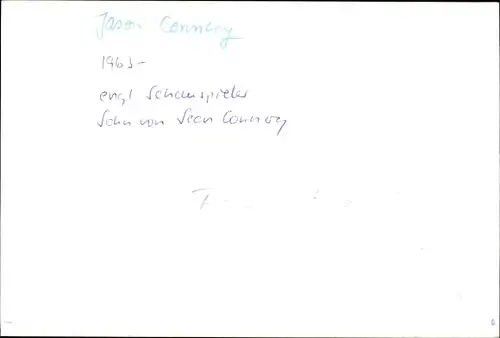 Jason Connery
1963-
engl Schauspieler
Sohn von Sean Connery